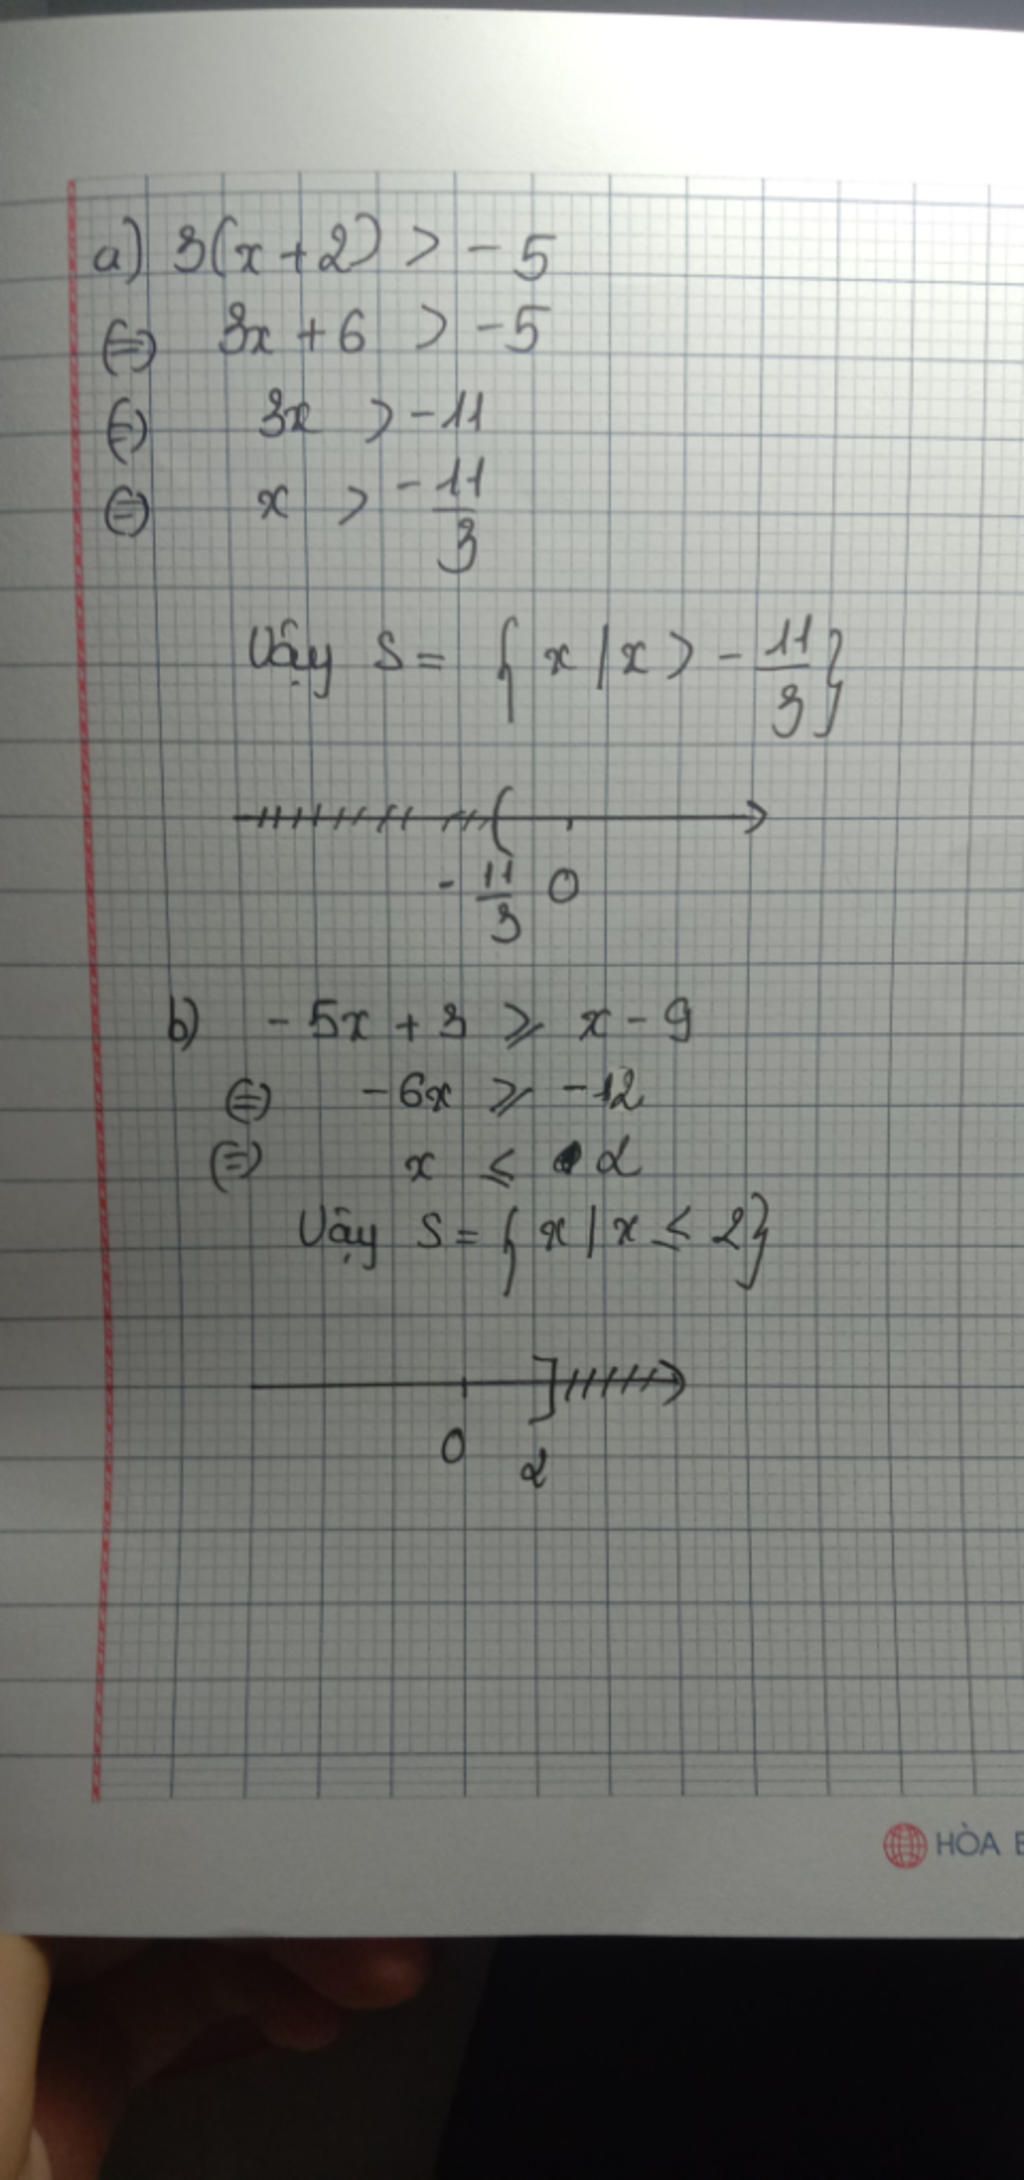 a) 3(x + 2) > - 5
⇔ 3x + 6 > - 5
⇔ 3x > - 11
⇔ x > - 11/3
Vậy S = { x / x > - 11/3 }
- 11/3 0
b) - 5x + 3 ⩾ x - 9
⇔ - 6x ⩾ - 12
⇔ x ≤ 2
Vậy S = { x / x ≤ 2 }
0 2
HÒA